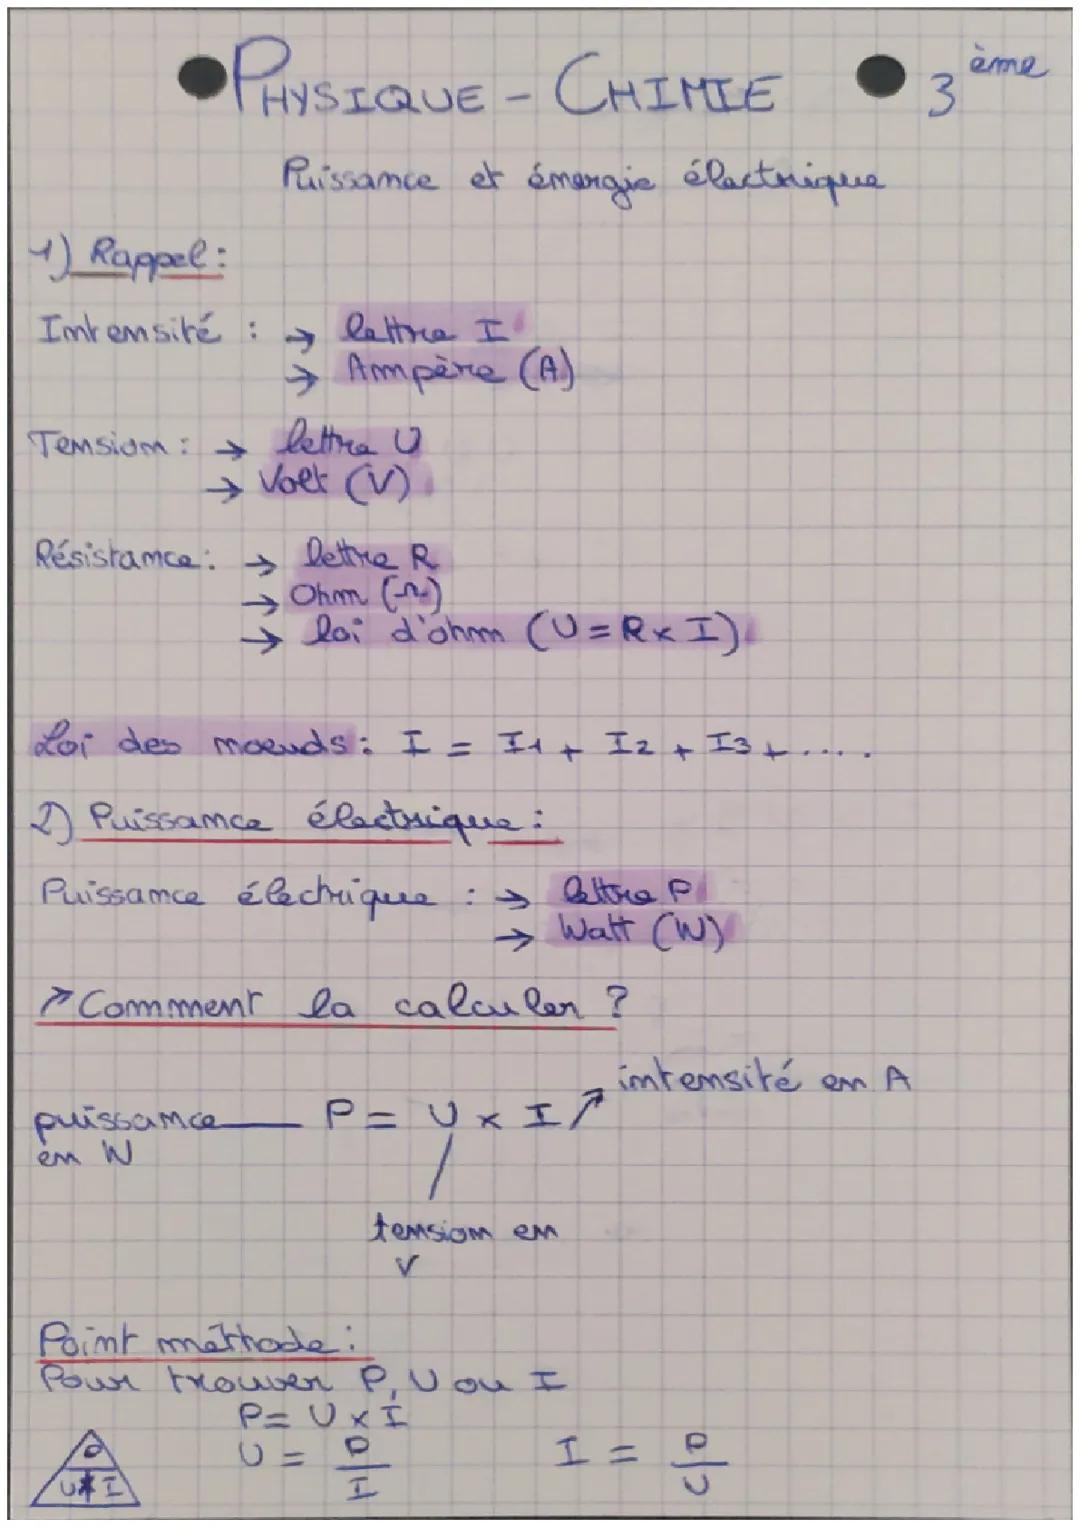 PHYSIQUE - CHIMIE 3ème
Puissance et énergie électrique
1) Rappel :
Intensité : → lettre I
→ Ampère (A)
Tension : → lettre U
→ Volt (V)
Résistance : → lettre R
→ Ohm (Ω)
→ loi d'ohm (U = R x I)
Loi des noeuds : I = I1 + I2 + I3 + ....
2) Puissance électrique :
Puissance électrique : → lettre P
→ Watt (W)
↗ Comment la calculer ?
intensité en A
puissance P = U x I
en W
tension en
V
Point méthode :
Pour trouver P, U ou I
P = U x I
U = P/I I = P/U
P
U * I